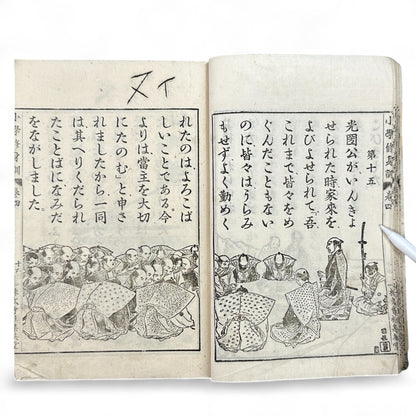 小學修身訓 卷四
第十五
光圀公がいんきよ
せられた時家來を
よびよせられて「吾
これまで皆々をめ
ぐんだこともない
のに皆々はうらみ
もせずよく勤めく
れたのはよろこば
しいことである今
よりは當主を大切
にたのむ」と申さ
れましたから一同
は其へりくだられ
たことばになみだ
をながしました
小學修身訓 卷四
ヌイ